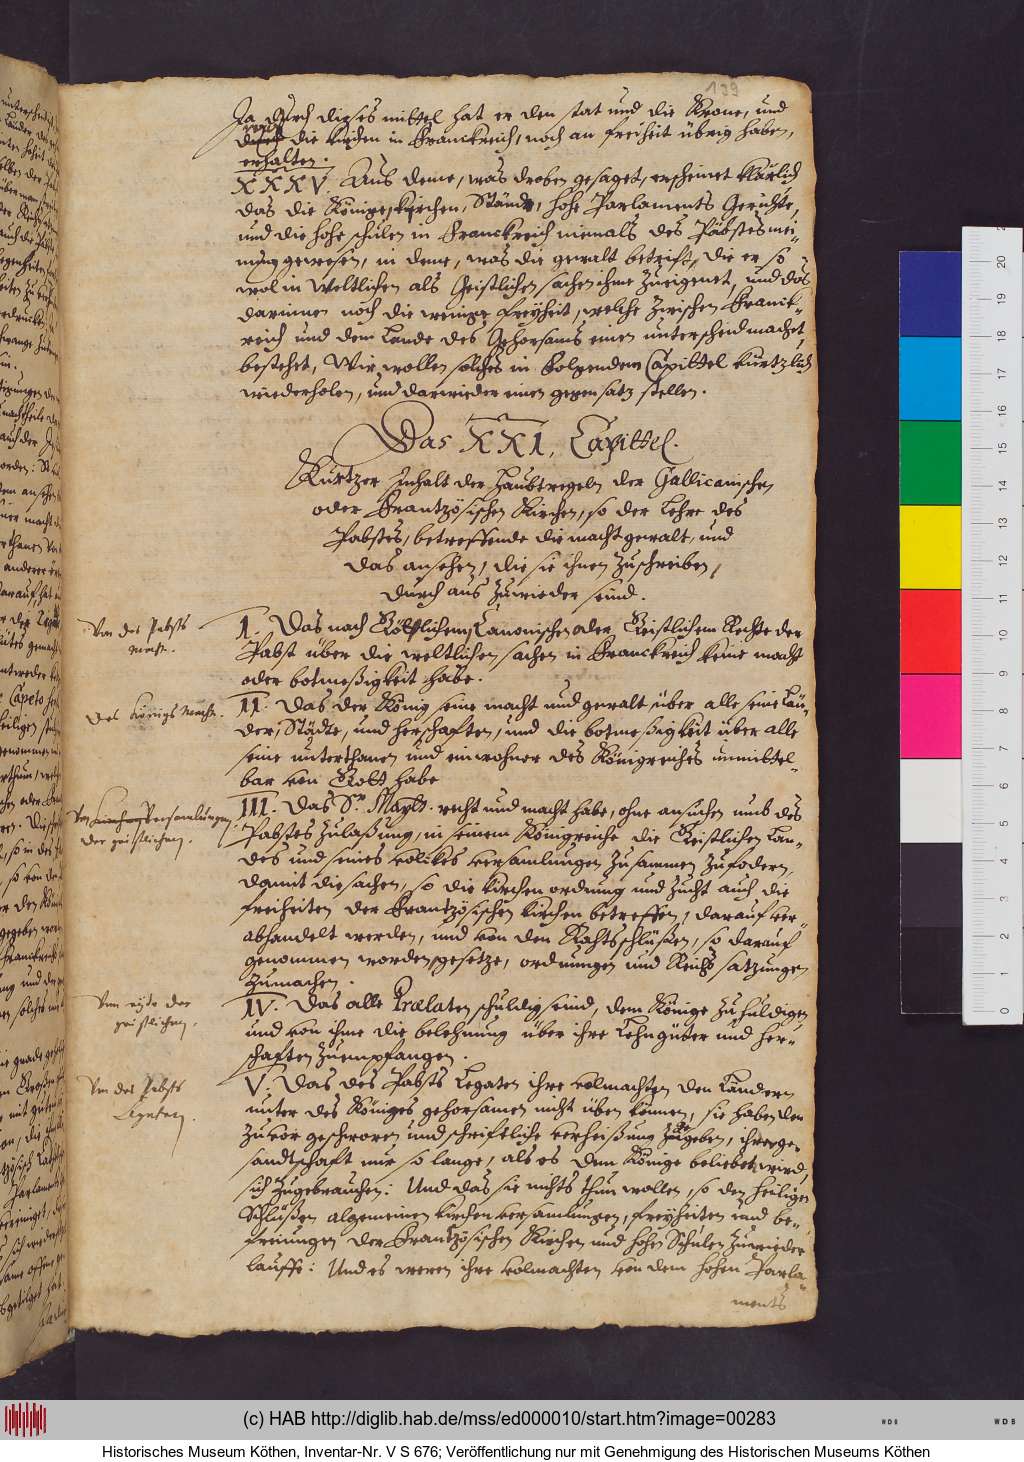 139
Ja durch dieses mittel hat er den stat und die Krone, und
auch die kirchen in Franckreich, noch an freiheit übrig haben,
erhalten.
XXXV. Aus deme, was droben gesaget, erscheinet klärlich
das die Könige, kirchen, Stände, hohe Parlaments Gerichte,
und die hohe schulen in Franckreich niemals des Pabstes mei-
nung gewesen, in deme, was die gewalt betrift, die er so
wol in Weltlichen als Geistlichen sachen ihme zueigenet, und das
darinnen noch die wenige freyheit, welche zwischen Franck-
reich und dem Lande des Gehorsams einen unterscheid machet,
bestehet, Wir wollen solches in folgendem Capittel kürtzlich
wiederholen, und darwieder einen gegensatz stellen.
Das XXI, Capittel.
Kurtzer Inhalt der Haubtregeln der Gallicanischen
oder Frantzösischen Kirchen, so der Lehre des
Pabstes, betreffende die macht gewalt, und
das ansehen, die sie ihnen zuschreiben,
durch aus zuwieder seind.
Von des Pabsts
macht.
I. Das nach Göttlichem, Canonischen oder Geistlichem Rechte der
Pabst über die weltlichen sachen in Franckreich keine macht
oder botmeßigkeit habe.
Des Königs macht.
II. Das der König seine macht und gewalt über alle seine Län-
der, Städte, und herschaften, und die botmeßigkeit über alle
seine unterthanen und einwohner des Königreiches unmittel-
bar von Gott habe
Von Versamlungen
der geistlichen.
III. Das Sr. Maytt. recht und macht habe, ohne ansuchen umb des
Pabstes zulaßung, in seinem Königreiche die Geistlichen Lan-
des und seines volckes versamlungen zusammen zufodern,
damit die sachen, so die kirchen ordnung und zucht auch die
freiheiten der Frantzösischen kirchen betreffen, darauf ver-
abhandelt werden, und von den Rahtsschlüßen, so darauf
genommen worden, gesetze, ordnungen und Reichs satzungen
zumachen.
Vom eyde der
geistlichen.
IV. Das alle Praelaten schuldig seind, dem Könige zu huldigen,
und von ihme die belehnung über ihre Lehngüter und her-
schaften zuempfangen.
Von des Pabsts
Legaten.
V. Das des Pabsts Legaten ihre volmachten den Ländern
unter des Königes gehorsamen nicht üben können, sie haben den
zuvor geschworen und schriftliche verheißung zugegeben, ihrer ge-
sandtschaft nur so lange, als es dem Könige beliebet wird,
sich zugebrauchen: Und das sie nichts thun wollen, so den heiligen
Schlüßen algemeinen kirchen versamlungen, freyheiten und be-
freiungen der Frantzösischen Kirchen und hohen Schulen zuwieder
lauffe: Und es weren ihre volmachten von dem hohen Parla-
ments
(c) HAB http://diglib.hab.de/mss/ed000010/start.htm?image=00283
Historisches Museum Köthen, Inventar-Nr. V S 676; Veröffentlichung nur mit Genehmigung des Historischen Museums Köthen